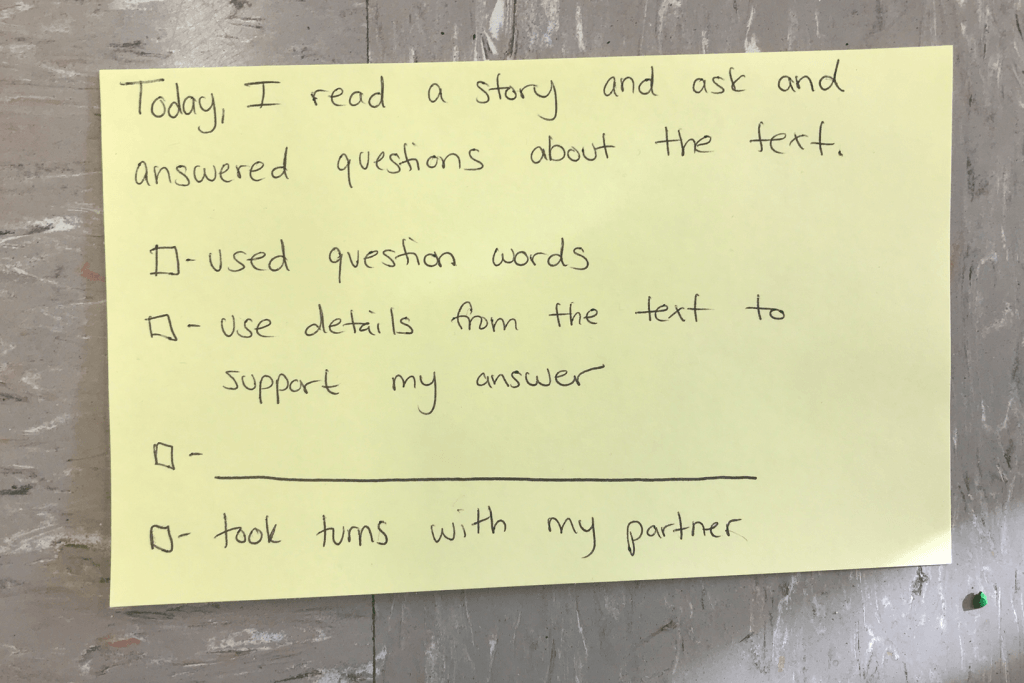 Today, I read a story and ask and
answered questions about the text.
□- used question words
□- use details from the text to
support my answer
□- ____________________
□- took turns with my partner